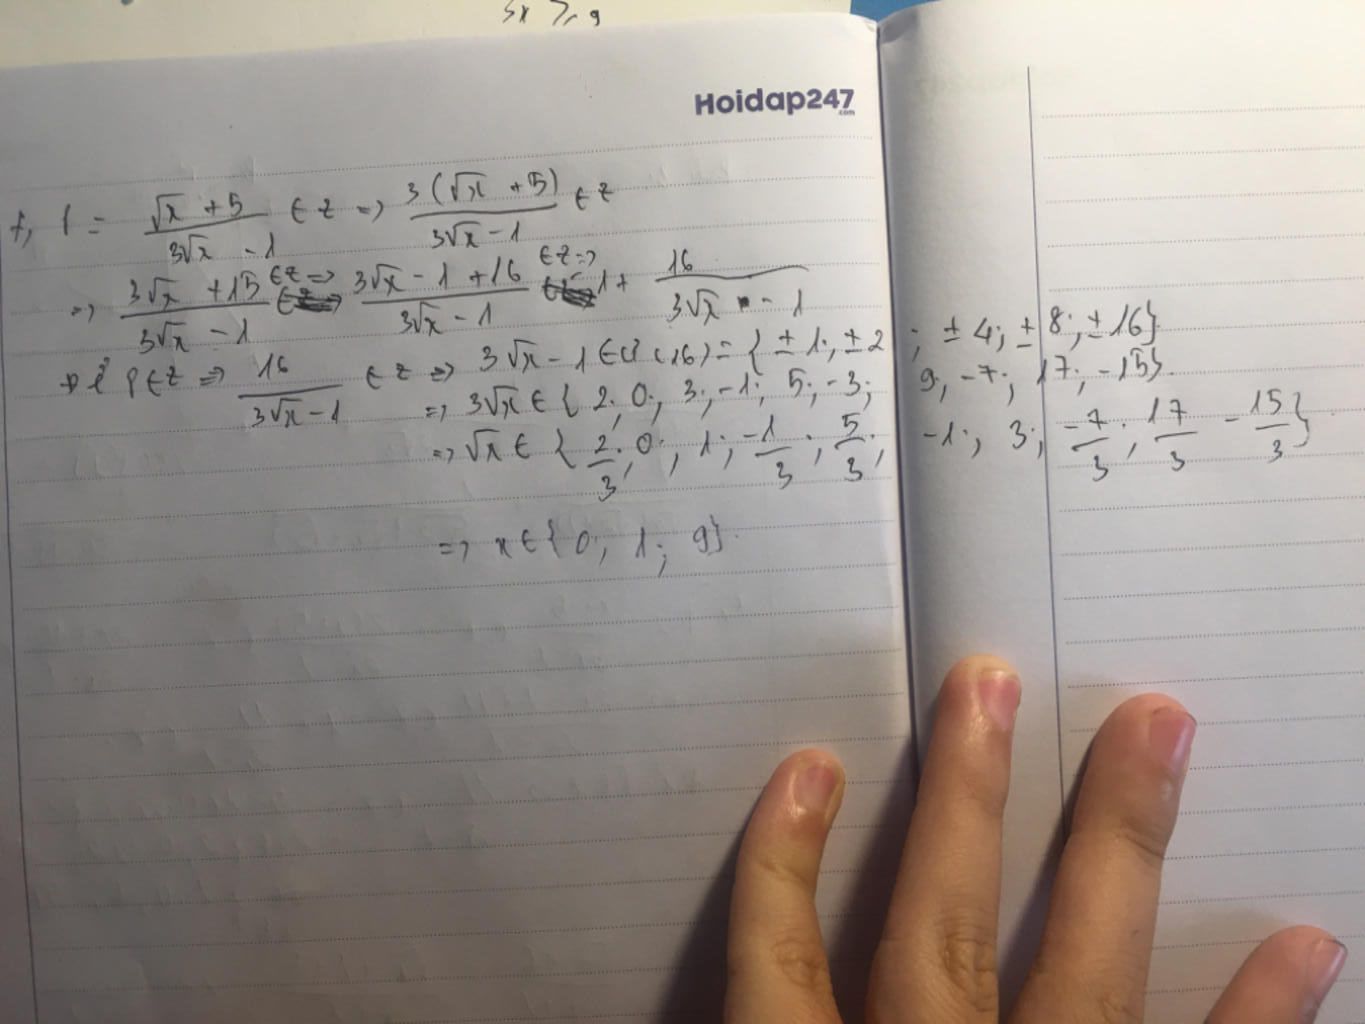 3x > 9
Hoidap247
.com
f, P = (√x + 5)/(3√x - 1) ∈ Z => 3(√x + 5)/(3√x - 1) ∈ Z
=> (3√x + 15)/(3√x - 1) ∈ Z => (3√x - 1 + 16)/(3√x - 1) ∈ Z => 1 + 16/(3√x - 1)
P ∈ Z => 16/(3√x - 1) ∈ Z => 3√x - 1 ∈ Ư(16) = { ± 1; ± 2; ± 4; ± 8; ± 16}
=> 3√x ∈ { 2; 0; 3; -1; 5; -3; 9; -7; 17; -15}.
=> √x ∈ { 2/3; 0; 1; -1/3; 5/3; -1; 3; -7/3; 17/3 - 15/3}
=> x ∈ { 0; 1; 9}.